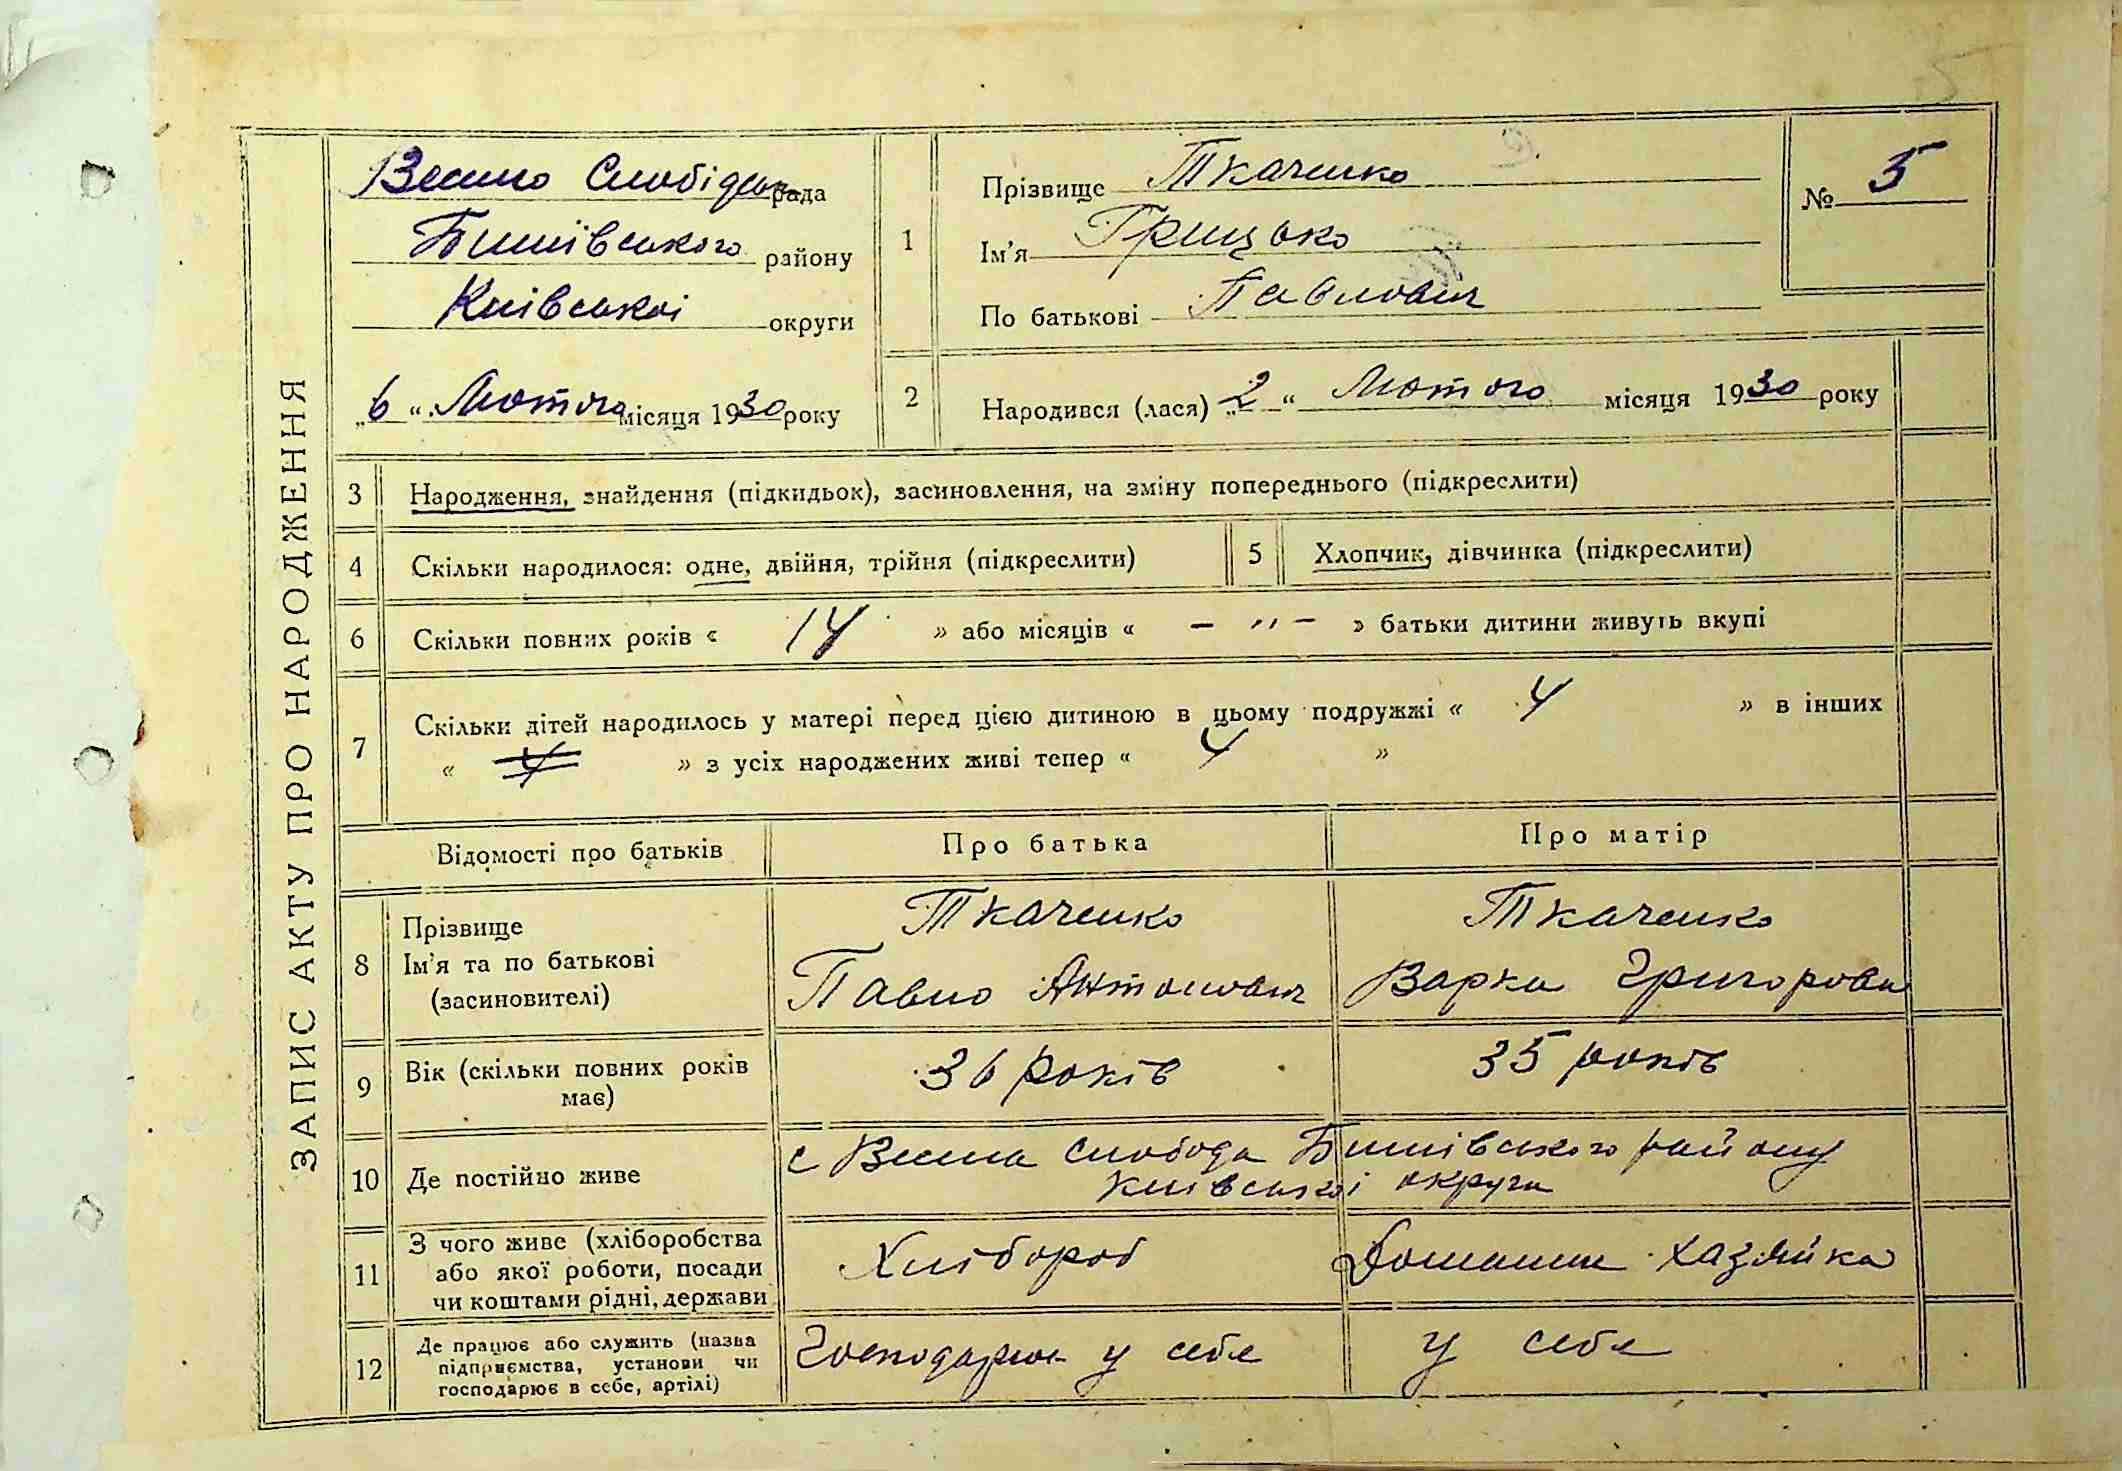 5
ЗАПИС АКТУ ПРО НАРОДЖЕННЯ
Весело Слобідська рада
Бишівського району
Київської округи
„6“ Лютого місяця 1930 року
1
Прізвище Ткаченко
Ім'я Грицько
По батькові Павлович
№ 5
2 Народився (лася) „2“ Лютого місяця 1930 року
3 Народження, знайдення (підкидьок), засиновлення, на зміну попереднього (підкреслити)
4 Скільки народилося: одне, двійня, трійня (підкреслити) 5 Хлопчик, дівчинка (підкреслити)
6 Скільки повних років « 14 » або місяців « – " – » батьки дитини живуть вкупі
7 Скільки дітей народилось у матері перед цією дитиною в цьому подружжі « 4 » в інших
« 4 » з усіх народжених живі тепер « 4 »
Відомості про батьків Про батька Про матір
8 Прізвище
Ім'я та по батькові
(засиновителі)
Ткаченко
Павло Антонович
Ткаченко
Варка Григорова
9 Вік (скільки повних років
має)
36 років 35 років
10 Де постійно живе
с Весела Слобода Бишівського району
Київської округи
11 З чого живе (хліборобства
або якої роботи, посади
чи коштами рідні, держави
Хлібороб Домашня хазяйка
12 Де працює або служить (назва
підприємства, установи чи
господарює в себе, артілі)
Господарює у себе у себе